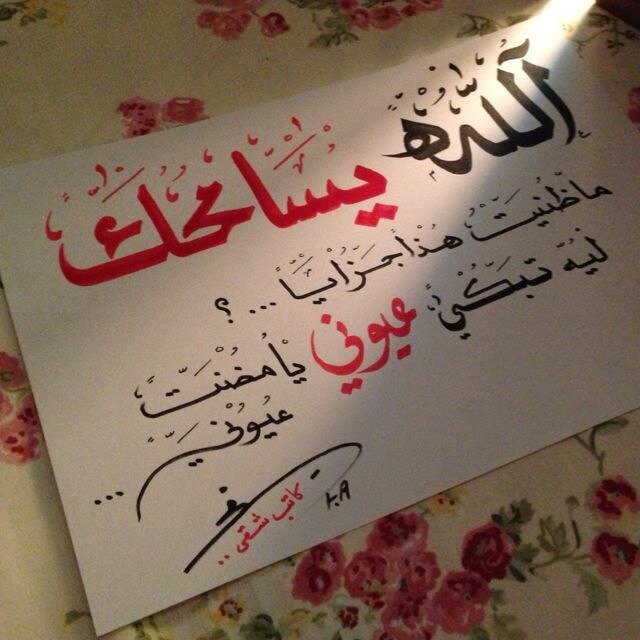 الله يسامحك
ماظنيت هذا جزايا ... ؟
ليه تبكي عيوني يا مضنت
عيوني ...
كاتب شقى ..